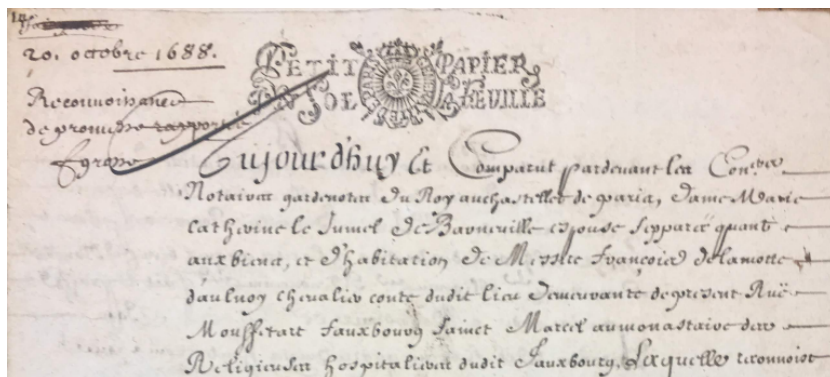 20. octobre 1688.
PETIT PAPIER
UN SOL LA FEUILLE
Reconnoissance
de promesse rapportée
Grosse
Aujourd'huy Est Comparut pardevant les Con.ers
Notaires gardenotes du Roy au chastellet de paris, Dame Marie
Catherine le Jumel de Barneville espouse sepparée quant
aux biens, et d'habitation de Messire François de lamotte
daulnoy chevalier conte dudit lieu Demeurante de present Ruë
Mouffetart fauxbourg saint Marcel au monastaire des
Religieuses hospitalieres dudit fauxbourg, Laquelle reconnoist